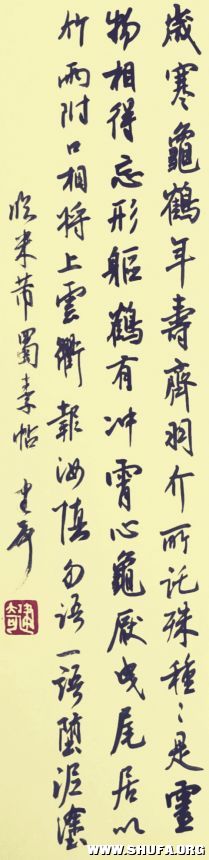 歲寒龜鶴年壽齊羽介所託殊種〻是靈
物相得忘形軀鶴有冲霄心龜厭曳尾居以
竹兩附口相將上雲衢報汝慎勿語一語墮泥塗
臨米芾蜀素帖
WWW.SHUFA.ORG